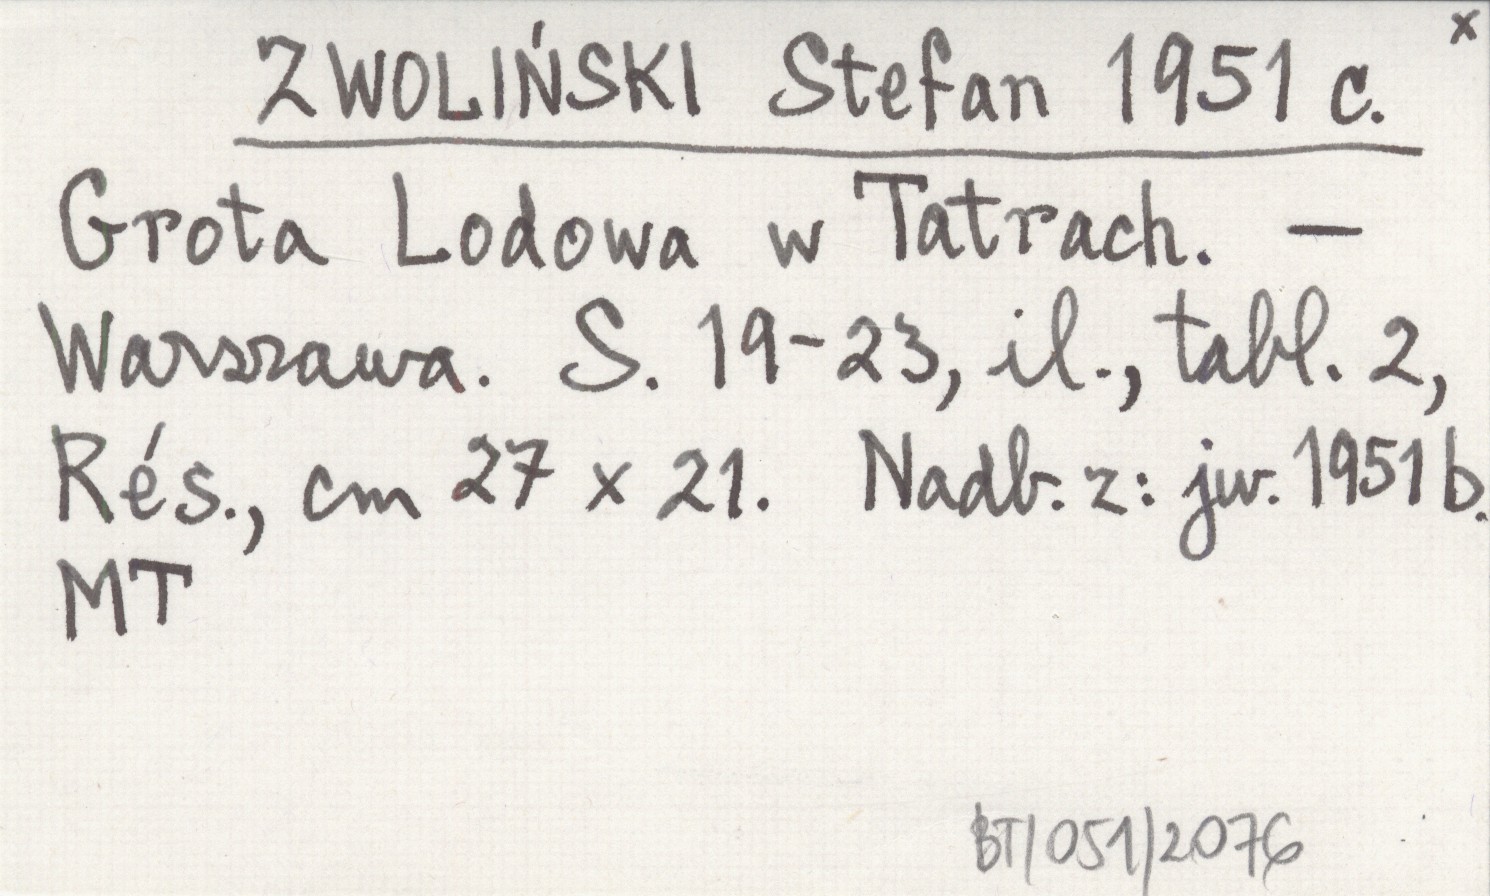 x
ZWOLIŃSKI Stefan 1951 c.
Grota Lodowa w Tatrach. —
Warszawa. S. 19-23, il., tabl. 2,
Rés., cm 27 x 21. Nadb. z: jw. 1951 b.
MT
BT/051/2076